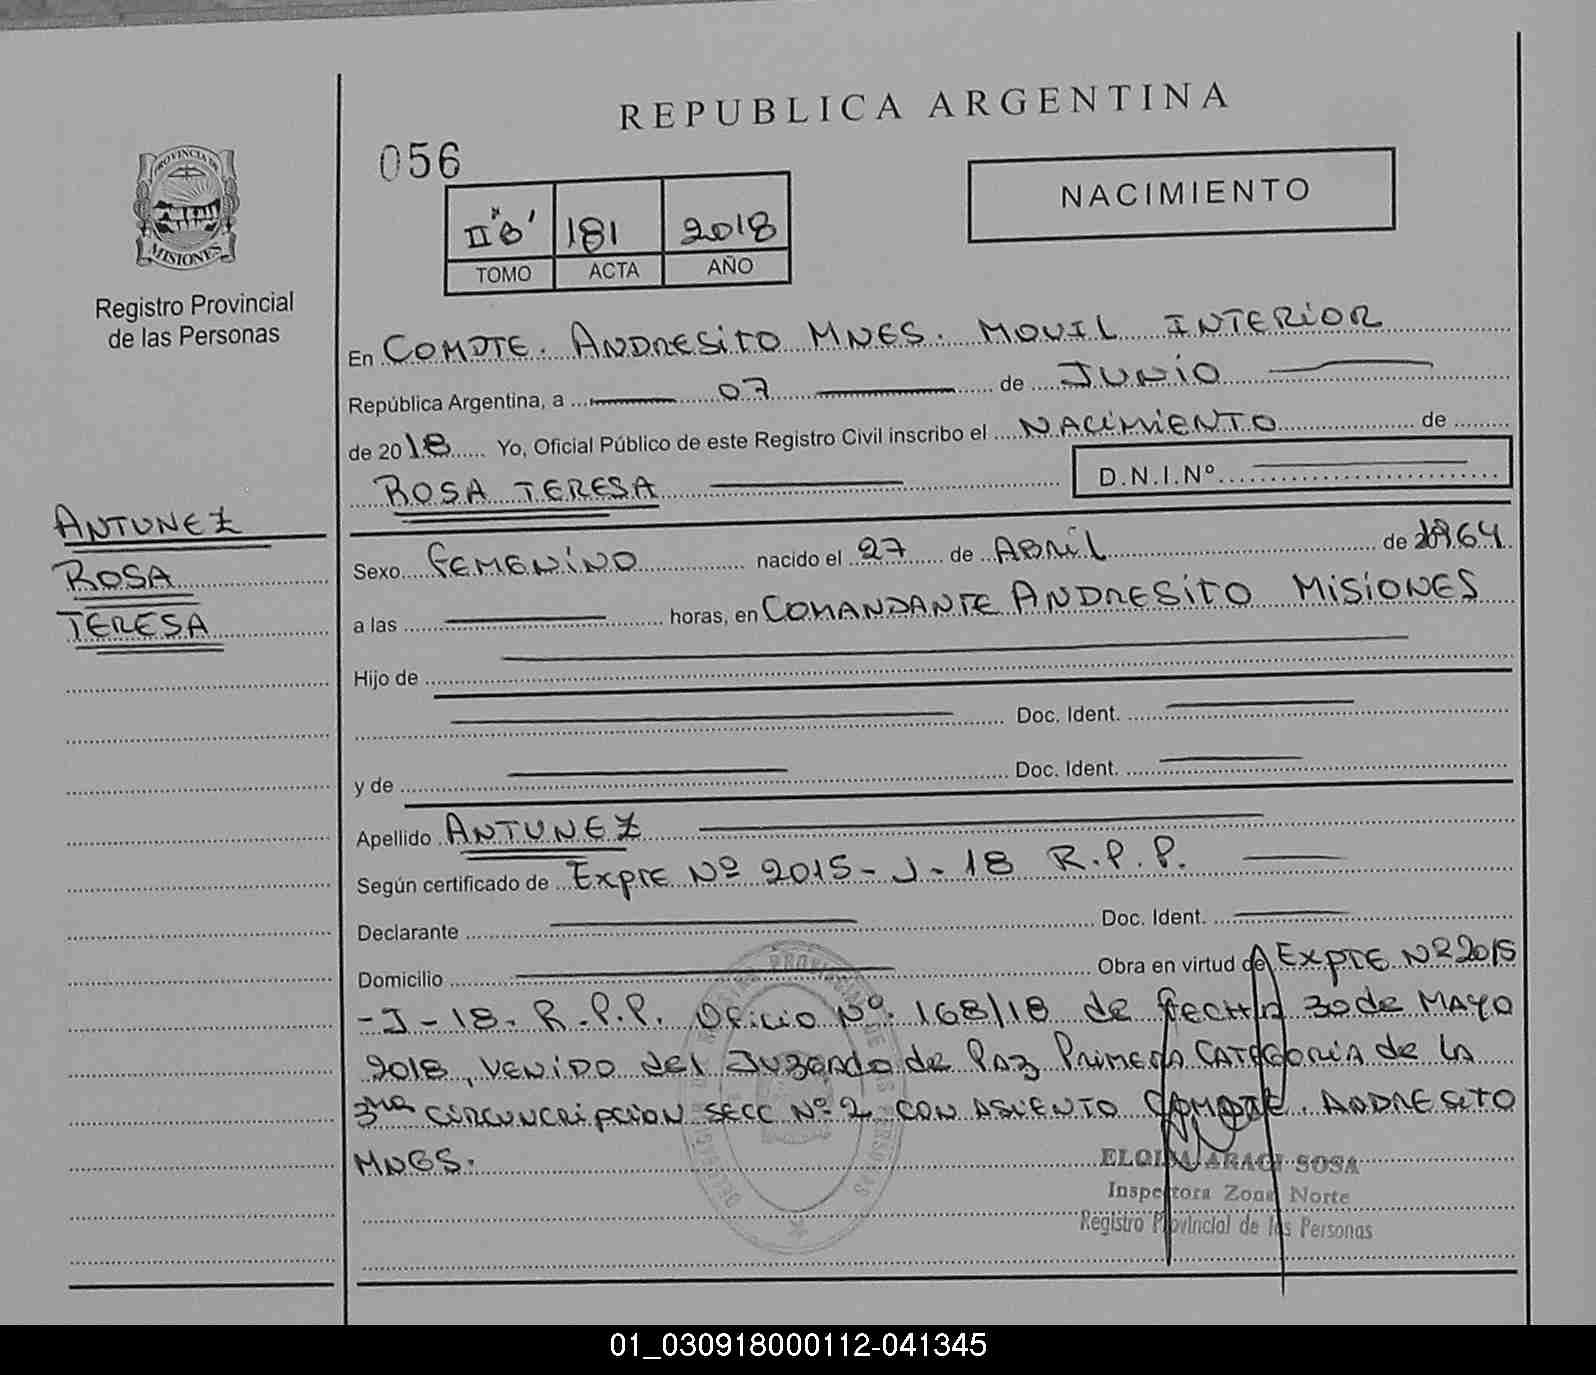 REPUBLICA ARGENTINA
056
NACIMIENTO
PROVINCIA DE
MISIONES
Registro Provincial
de las Personas
II "B" 181 2018
TOMO ACTA AÑO
En COMDTE. ANDRESITO MNES. MOVIL INTERIOR
República Argentina, a 07 de JUNIO
de 2018 Yo, Oficial Público de este Registro Civil inscribo el NACIMIENTO de
ROSA TERESA D.N.I.Nº
ANTUNEZ
ROSA
TERESA
Sexo FEMENINO nacido el 27 de ABRIL de 1964
a las horas, en COMANDANTE ANDRESITO MISIONES
Hijo de
Doc. Ident.
y de Doc. Ident.
Apellido ANTUNEZ
Según certificado de EXPTE Nº 2015-J-18 R.P.P.
Declarante Doc. Ident.
Domicilio Obra en virtud de EXPTE Nº 2015
-J-18. R.P.P. Oficio Nº 168/18 de fecha 30 de MAYO
2018, VENIDO del Juzgado de Paz Primera CATEGORIA de LA
3ra CIRCUNCRIPCION SECC Nº 2 CON ASIENTO COMDTE. ANDRESITO
MNES.
ELGIDA ARACI SOSA
Inspectora Zona Norte
Registro Provincial de las Personas
01_030918000112-041345